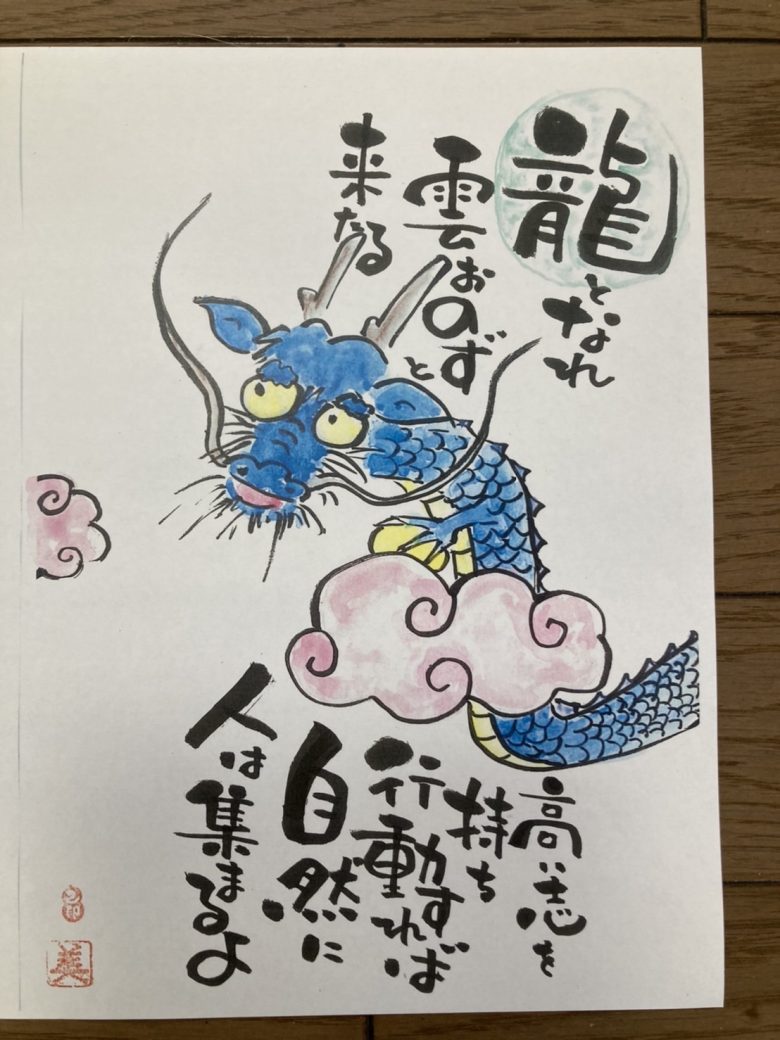 龍となれ
雲おのずと
来たる
高い志を
持ち
行動すれば
自然に
人は集まるよ
美